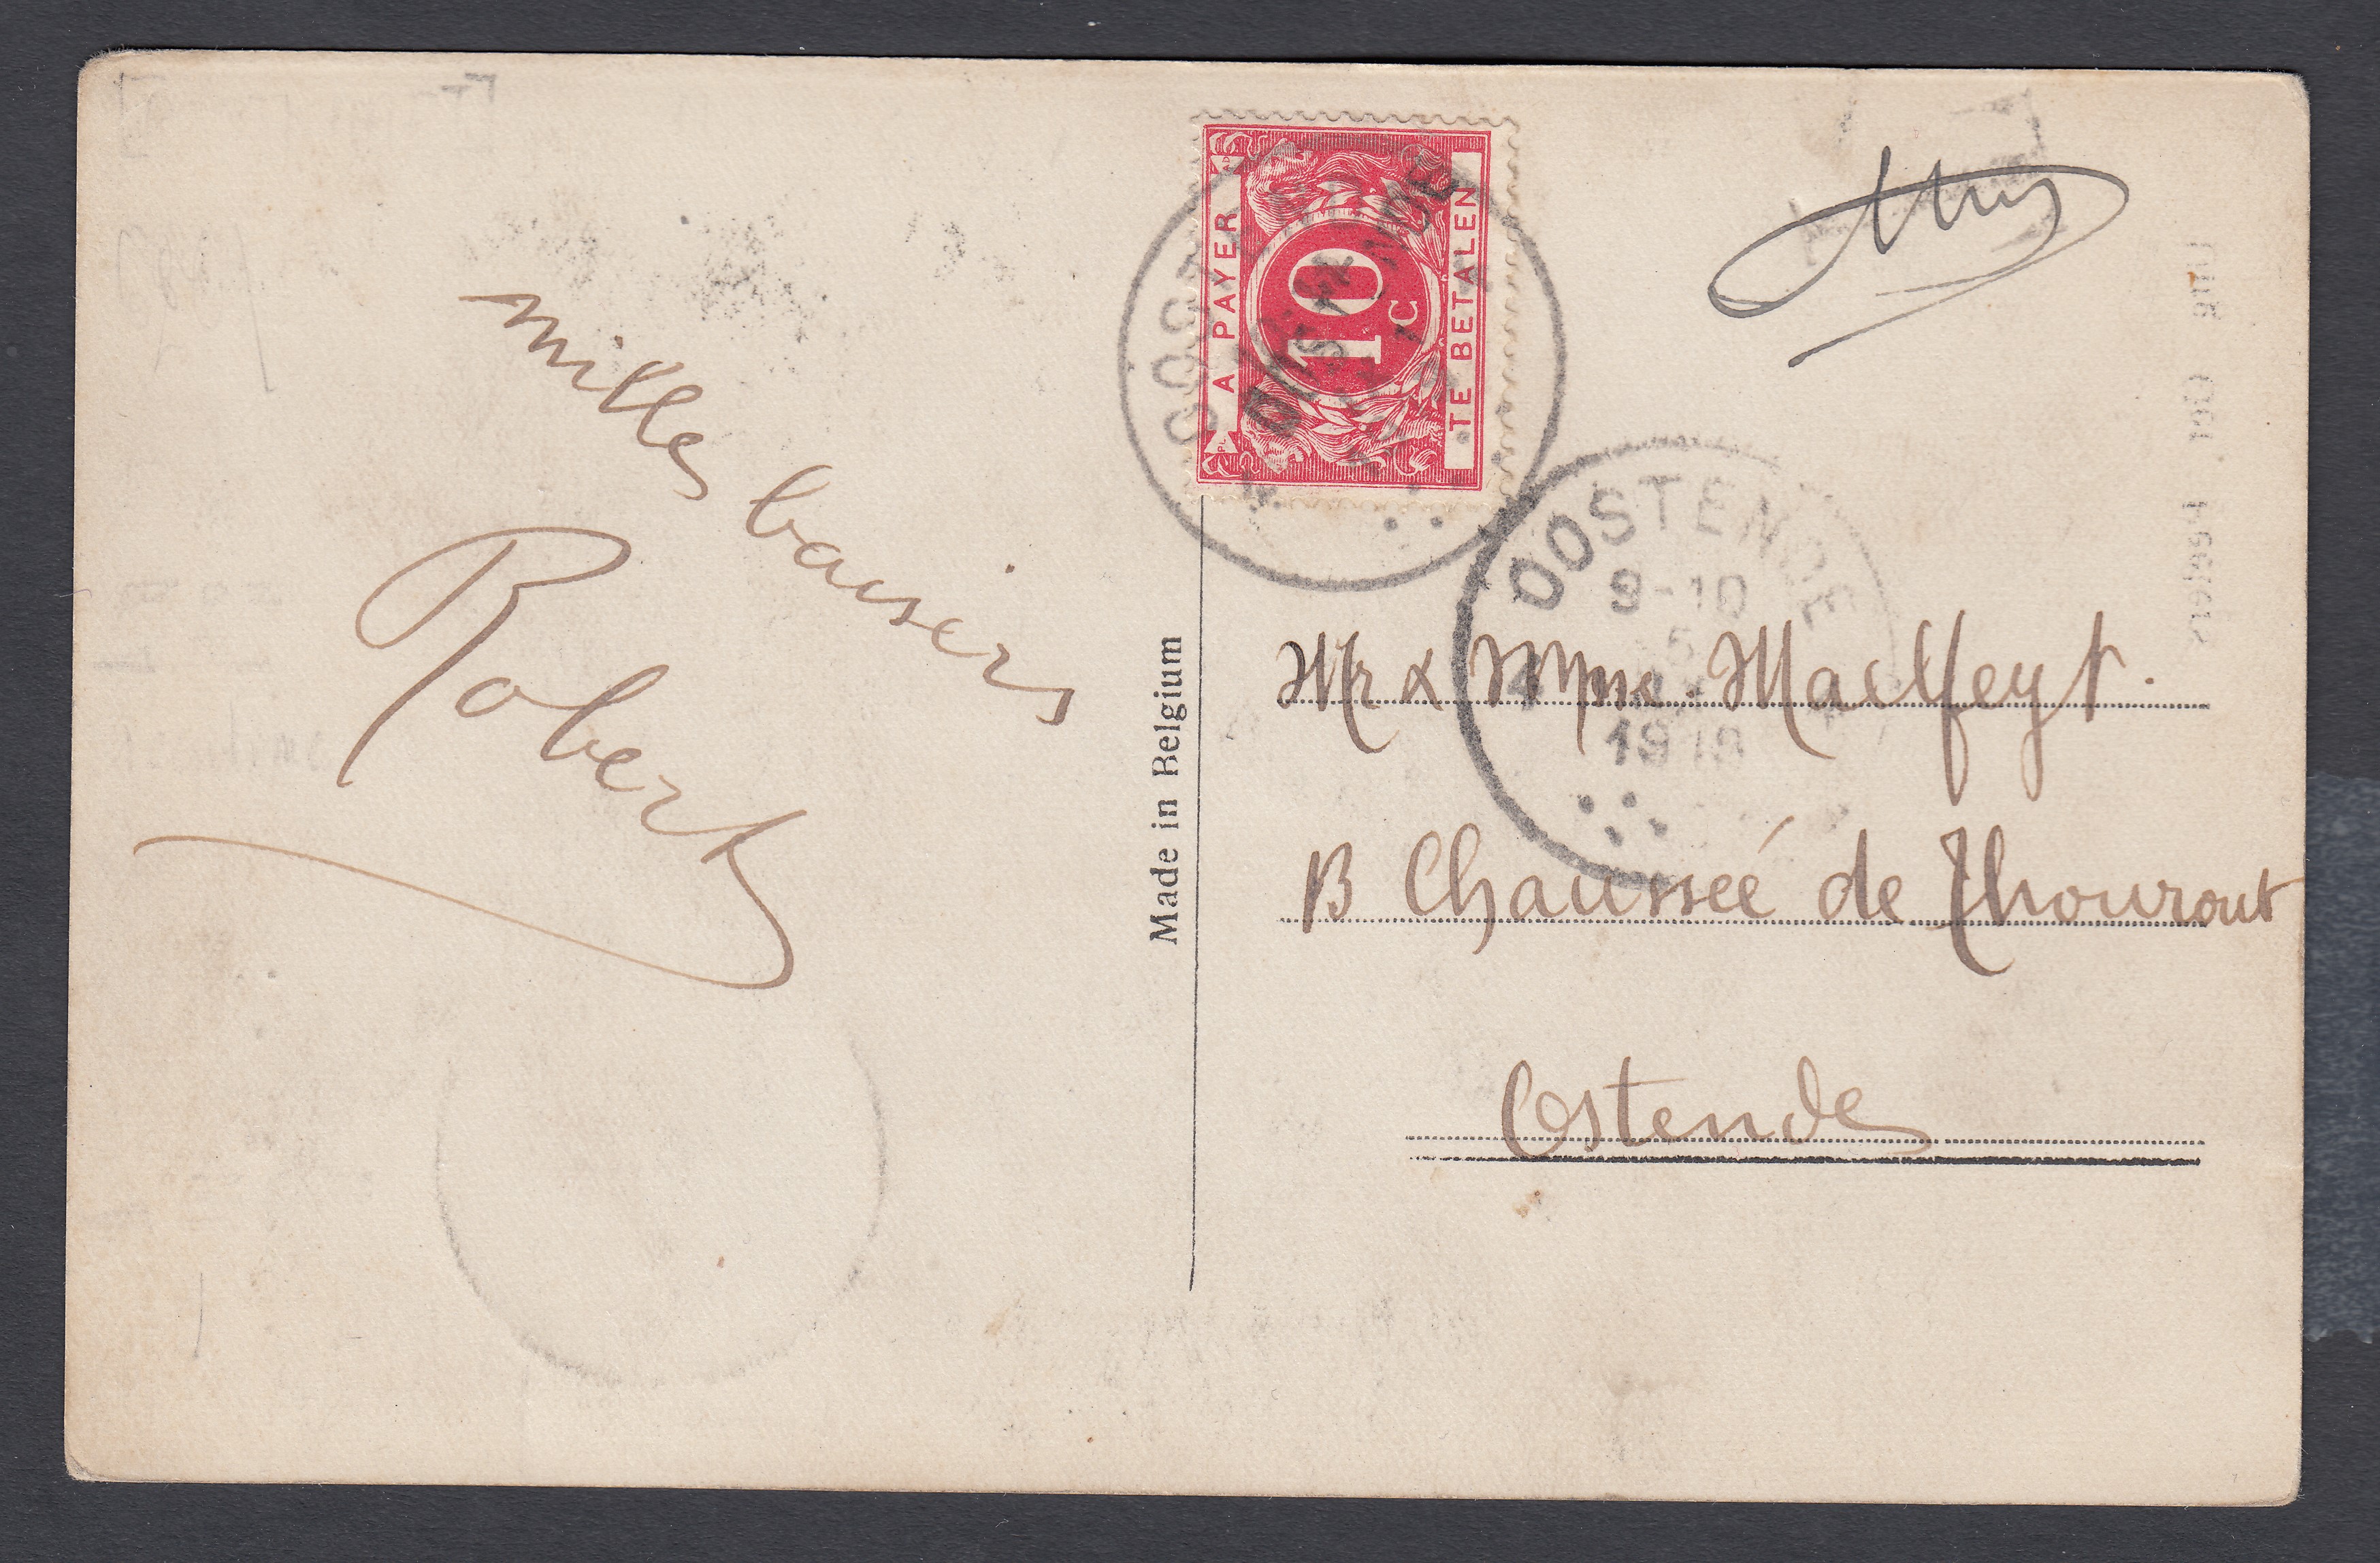 milles baisers
Robert
Made in Belgium
A PAYER
10 C
TE BETALEN
OOSTENDE
9-10
5
1919
Mr & Mme Maelfeyt.
13 Chausseé de Thourout
Ostende